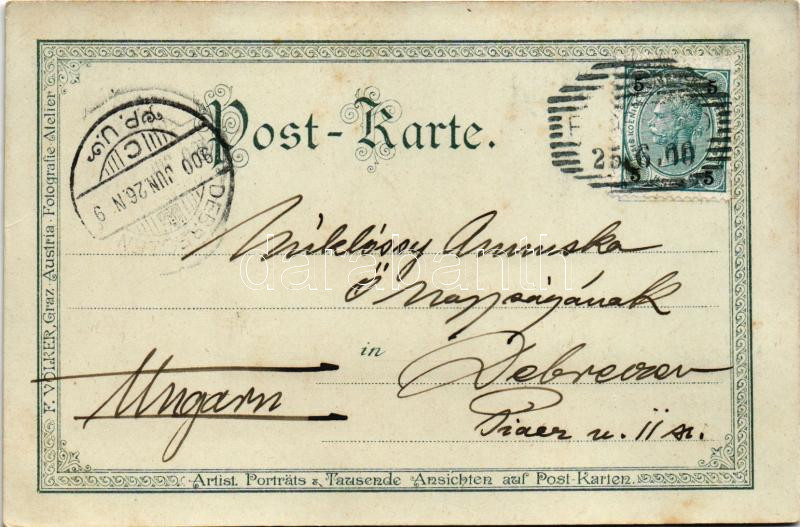 Post-Karte.
5 5
5 5
25.6.00
900 JUN 26.N 9
C
Miklóssy Annuska
Ő Nagyságának
in Debreczen
Ungarn
Piacz u. 11 sz.
F. VOLKER, Graz. Austria. Fotografie-Atelier
Artist. Porträts & Tausende Ansichten auf Post-Karten.
darabanth